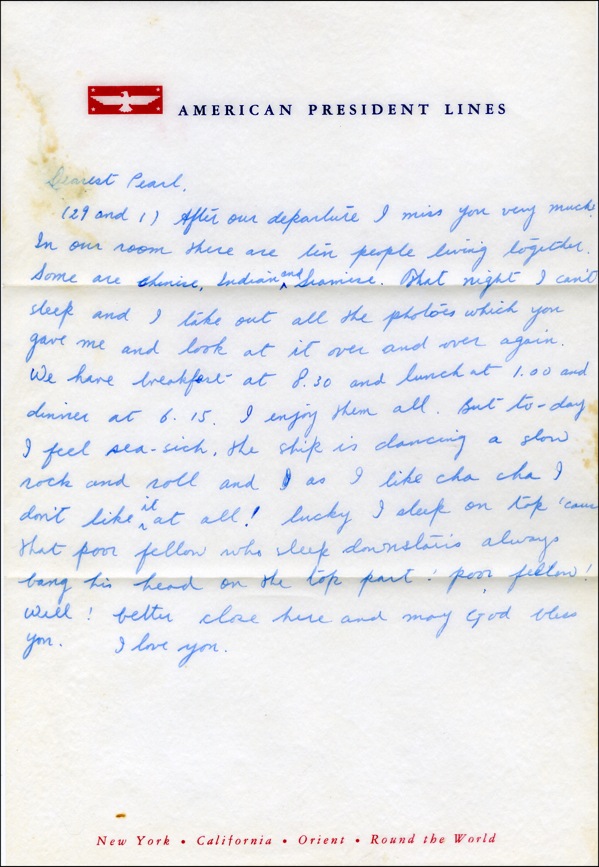 AMERICAN PRESIDENT LINES
Dearest Pearl,
(29 and 1) After our departure I miss you very much.
In our room there are ten people living together.
Some are chinise, Indian and Siamise. That night I can't
sleep and I take out all the photoes which you
gave me and look at it over and over again.
We have breakfast at 8.30 and lunch at 1.00 and
dinner at 6.15. I enjoy them all. But to-day
I feel sea-sick, the ship is dancing a slow
rock and roll and as I like cha cha I
don't like it at all! lucky I sleep on top 'cause
that poor fellow who sleep downstairs always
bang his head on the top part! poor fellow!
Well! better close here and may God bless
you. I love you.
New York • California • Orient • Round the World